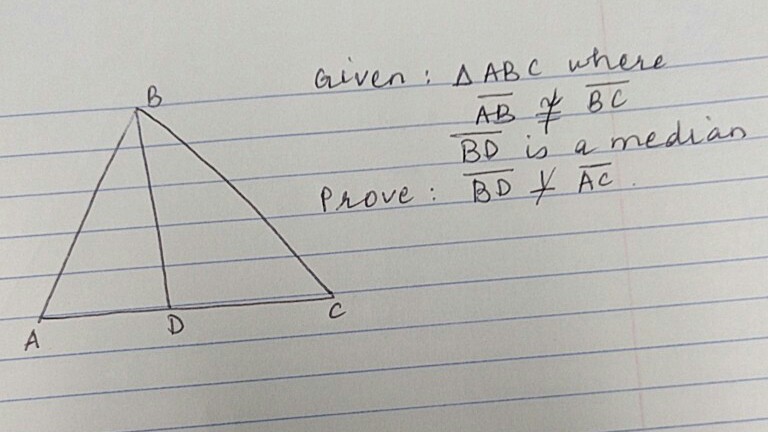 Given : △ ABC where
A̅B̅ ≇ B̅C̅
B̅D̅ is a median
Prove : B̅D̅ ⊥̸ A̅C̅.
B
A
D
C